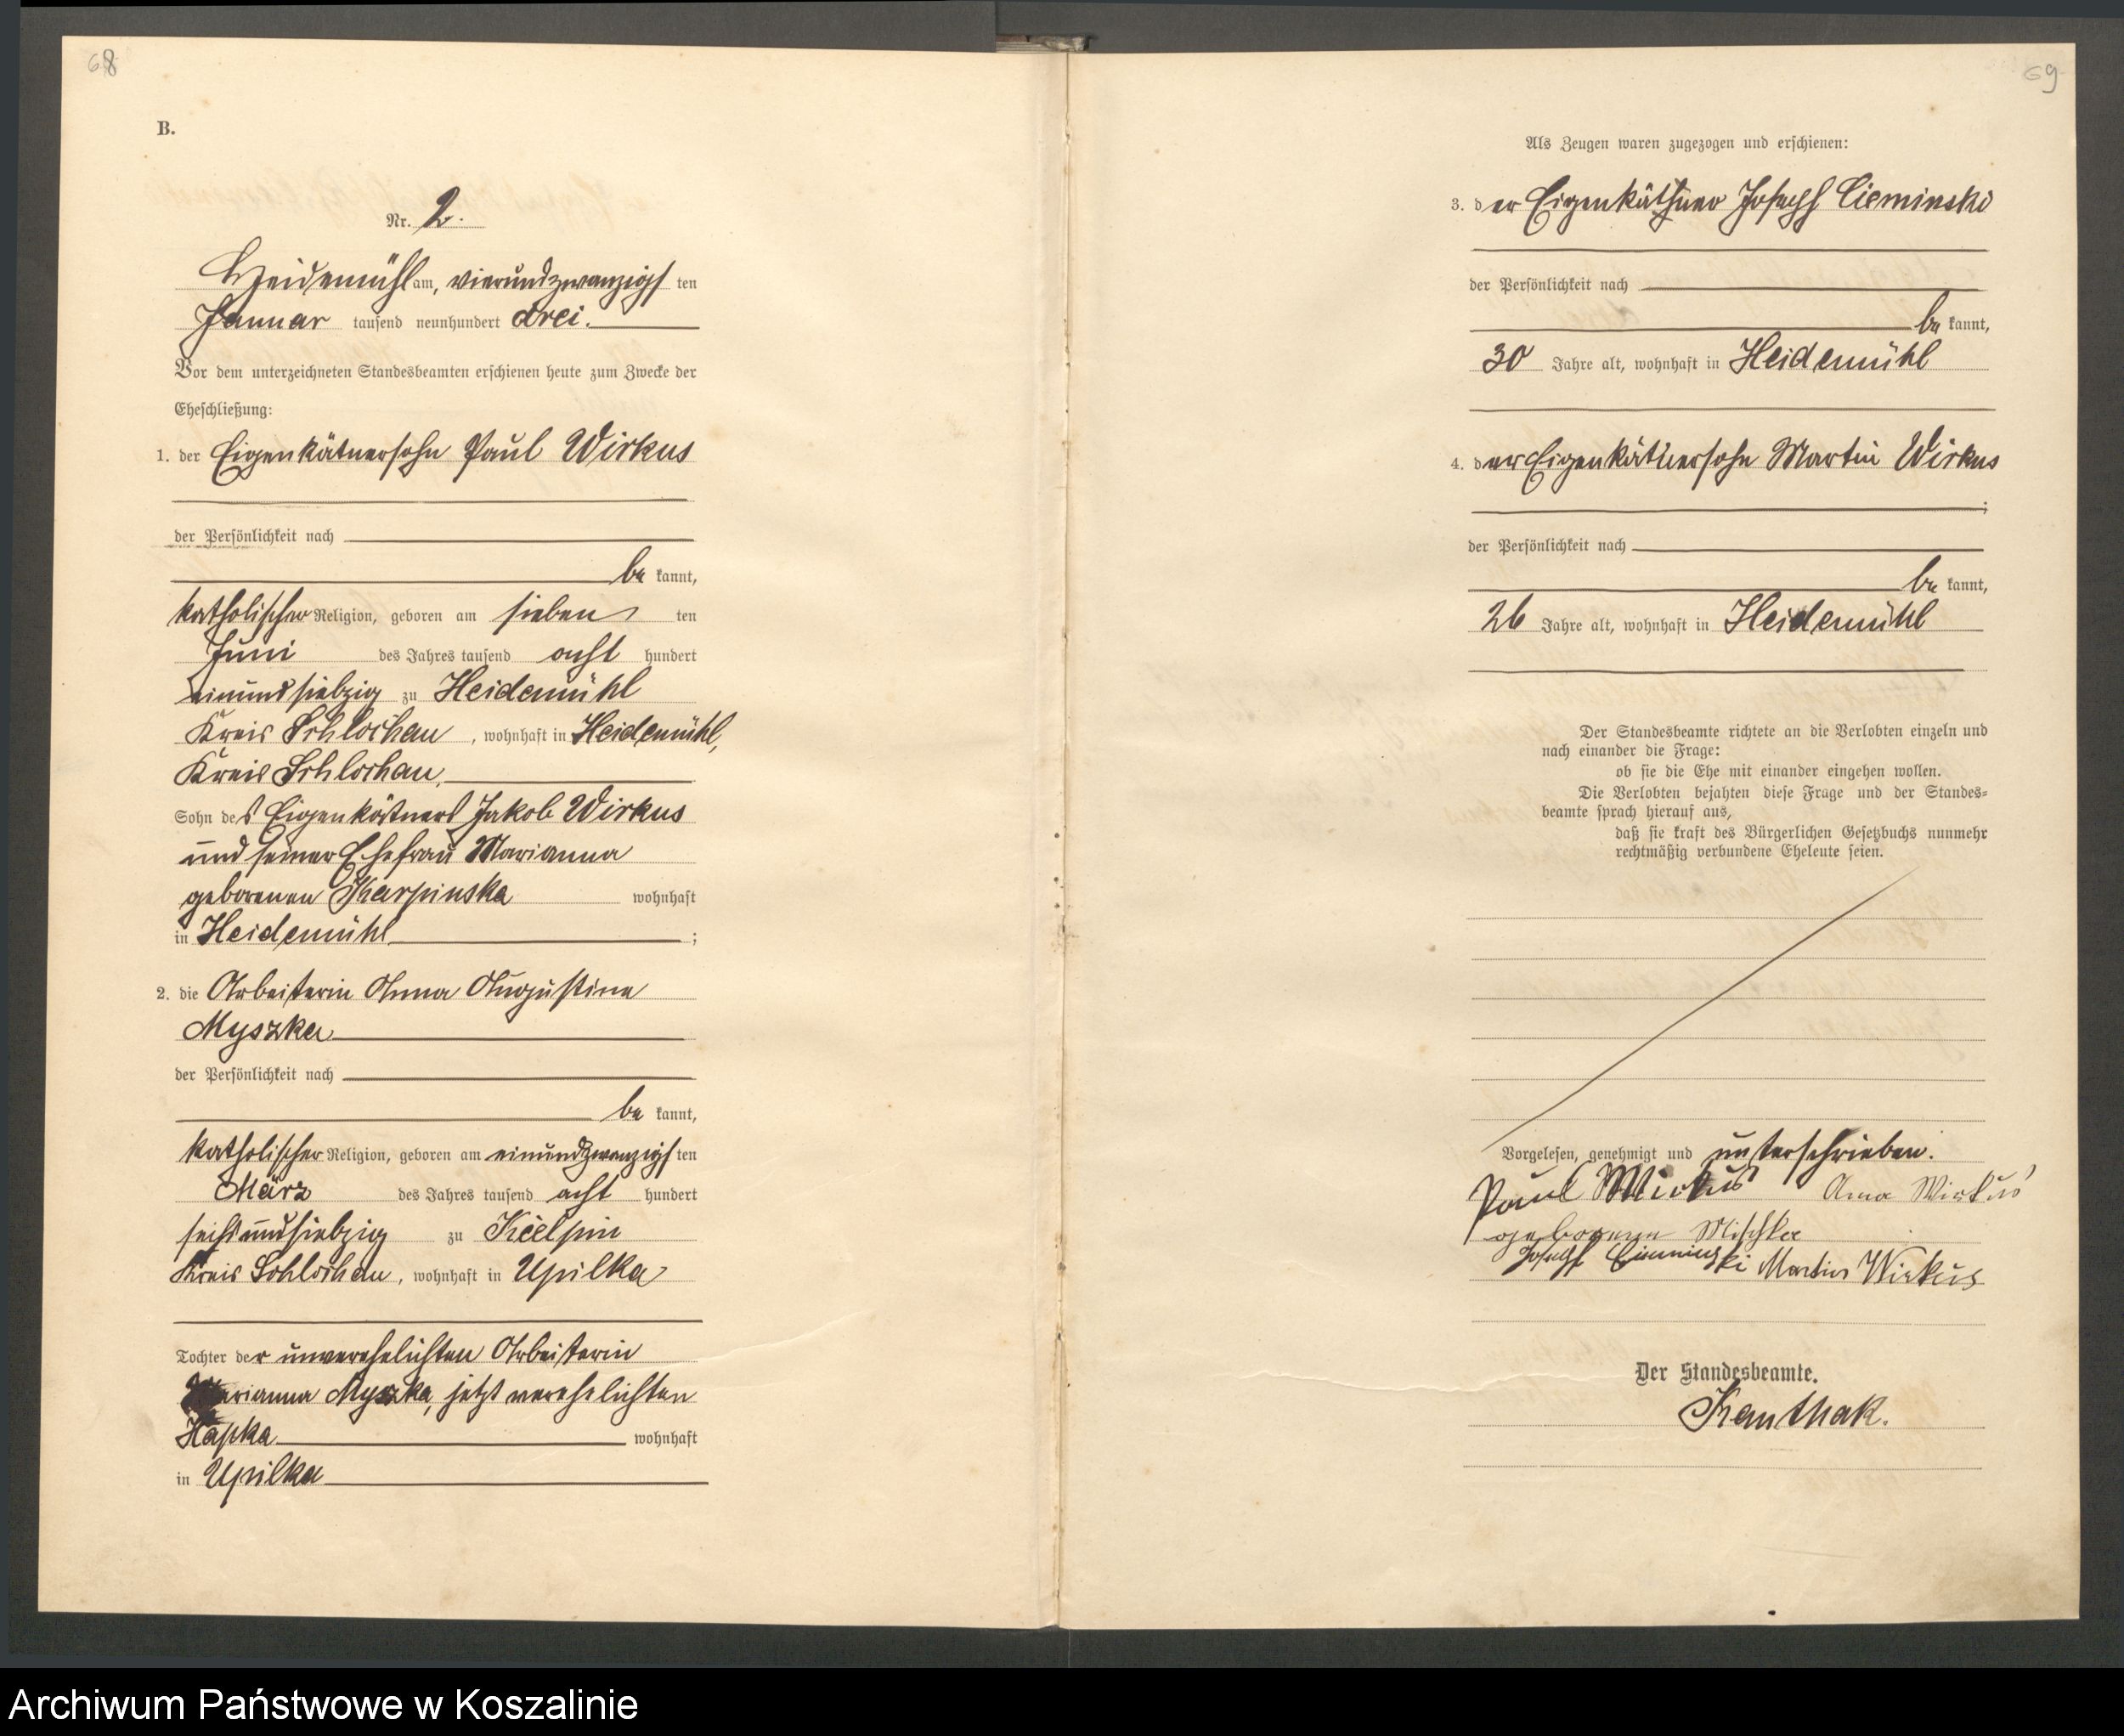 68
B.
Nr. 2.
Heidemühl am, vierundzwanzigsten
Januar tausend neunhundert drei.
Vor dem unterzeichneten Standesbeamten erschienen heute zum Zwecke der
Eheschließung:
1. der Eigenkätnersohn Paul Wirkus
der Persönlichkeit nach
be kannt,
katholischer Religion, geboren am sieben ten
Juni des Jahres tausend acht hundert
einundsiebzig zu Heidemühl
Kreis Schlochau, wohnhaft in Heidemühl,
Kreis Schlochau,
Sohn des Eigenkätners Jakob Wirkus
und seiner Ehefrau Marianna
geborenen Karpinska wohnhaft
in Heidemühl ;
2. die Arbeiterin Anna Augustine
Myszka
der Persönlichkeit nach
be kannt,
katholischer Religion, geboren am einundzwanzigsten
März des Jahres tausend acht hundert
sechsundsiebzig zu Kielpin
Kreis Schlochau, wohnhaft in Upilka
Tochter der unverehelichten Arbeiterin
Marianna Myszka, jetzt verehelichten
Hapka wohnhaft
in Upilka
69
Als Zeugen waren zugezogen und erschienen:
3. der Eigenkäthner Joseph Cieminski
der Persönlichkeit nach
be kannt,
30 Jahre alt, wohnhaft in Heidemühl
4. der Eigenkätnersohn Martin Wirkus
;
der Persönlichkeit nach
be kannt,
26 Jahre alt, wohnhaft in Heidemühl
Der Standesbeamte richtete an die Verlobten einzeln und
nach einander die Frage:
ob sie die Ehe mit einander eingehen wollen.
Die Verlobten bejahten diese Frage und der Standes=
beamte sprach hierauf aus,
daß sie kraft des Bürgerlichen Gesetzbuchs nunmehr
rechtmäßig verbundene Eheleute seien.
Vorgelesen, genehmigt und unterschrieben.
Paul Wirkus Anna Wirkus
geborene Mischka
Joseph Cieminski Martin Wirkus
Der Standesbeamte.
Kanthak.
Archiwum Państwowe w Koszalinie